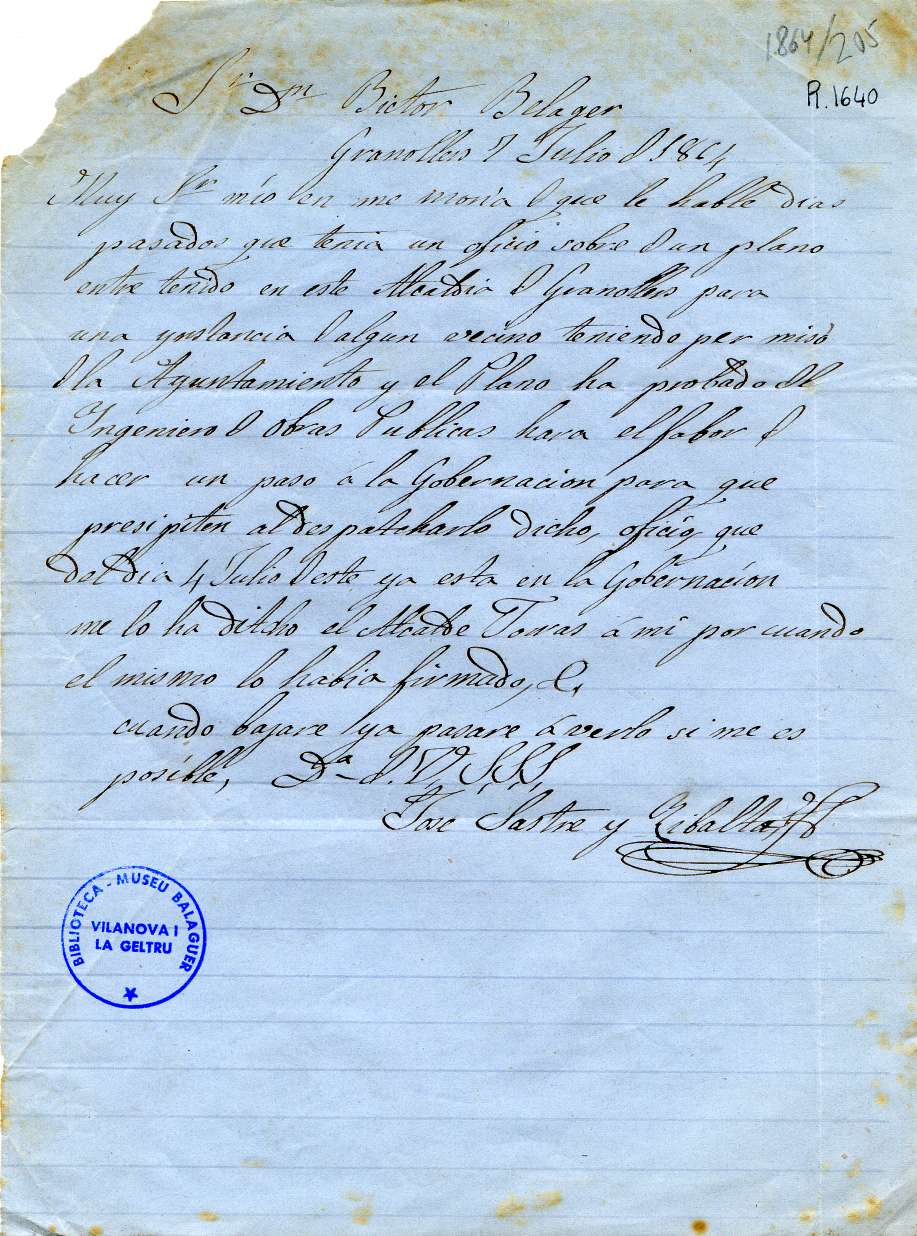 1864/205
R.1640
Sr. Dn Bictor Belager
Granollers 7 Julio d 1864
Muy Sr mío en me moria d que le hable dias
pasados que tenia un oficio sobre d un plano
entre tenido en este Alcaldia d Granollers para
una ynstancia d algun vecino teniendo per miso
d la Ayuntamiento y el Plano ha probado del
Ingeniero d Obras Publicas hara el fabor d
hacer un paso á la Gobernacion para que
presipiten al des patcharlo dicho, oficio, que
del dia 4 Julio d este ya esta en la Gobernacion
me lo ha ditcho el Alcalde Torras á mi por cuando
el mismo lo habia firmado,
cuando bajare ya pasare á verlo si me es
posible, Da d. V. S.S.S.
Jose Sastre y Ribalta
BIBLIOTECA - MUSEU BALAGUER
VILANOVA I
LA GELTRU